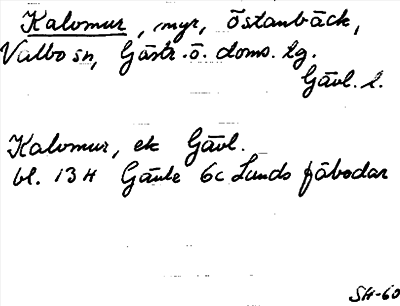 Kalvmur, myr, Östanbäck,
Valbo sn, Gästr. ö. doms. tg.
Gävl. l.
Kalvmur, ek Gävl.
bl. 13 H Gävle 6c Lunds fäbodar
SH-60